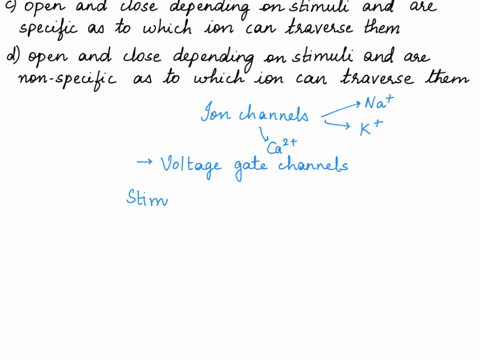 c) open and close depending on stimuli and are
specific as to which ion can traverse them
d) open and close depending on stimuli and are
non-specific as to which ion can traverse them
Ion channels → Na⁺
→ K⁺
Ca²⁺
→ Voltage gate channels
Stim